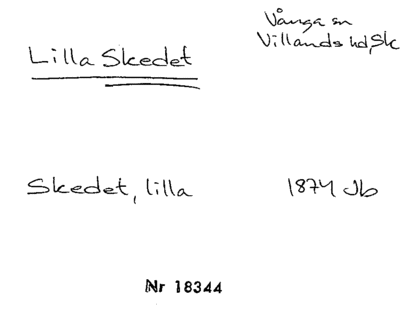 Vånga sn
Villands hd, Sk
Lilla Skedet
Skedet, lilla
1874 Jb
Nr 18344